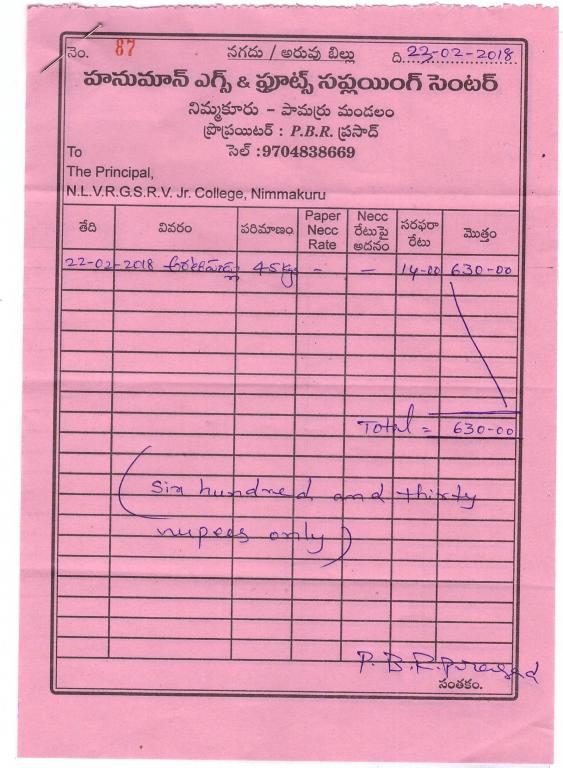 నెం. 87 నగదు / అరువు బిల్లు ది. 23-02-2018
హనుమాన్ ఎగ్స్ & ఫ్రూట్స్ సప్లయింగ్ సెంటర్
నిమ్మకూరు - పామర్రు మండలం
ప్రొప్రయిటర్ : P.B.R. ప్రసాద్
To సెల్ :9704838669
The Principal,
N.L.V.R.G.S.R.V. Jr. College, Nimmakuru
తేది వివరం పరిమాణం Paper Necc Rate Necc రేటుపై అదనం సరఫరా రేటు మొత్తం
22-02-2018 45 kg - - 14-00 630-00
Total = 630-00
(Six hundred and thirty
rupees only)
P. B. R. Prasad
సంతకం.